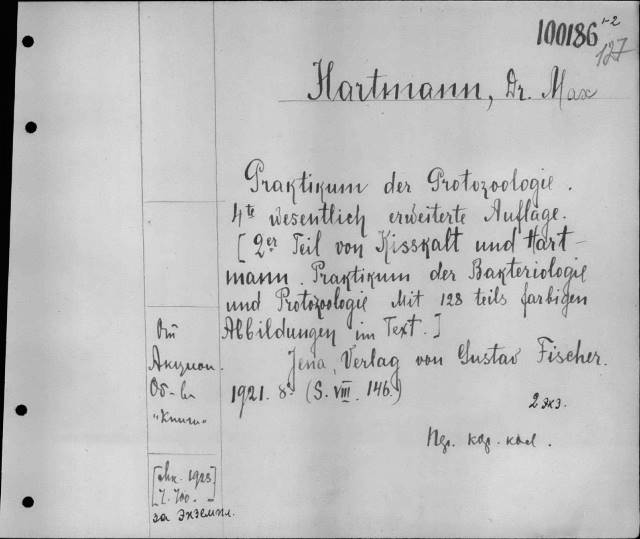 100186 1-2
127
Hartmann, Dr. Max
Praktikum der Protozoologie.
4te wesentlich erweiterte Auflage.
[2er Teil von Kisskalt und Hart-
mann. Praktikum der Bakteriologie
und Protozoologie Mit 128 teils farbigen
Abbildungen im Text.]
Jena, Verlag von Gustav Fischer.
1921. 8° (S. VIII. 146.)
2 экз.
кар. кол.
От
Акцион.
Об-ва
"Книга"
1923]
за экземпл.